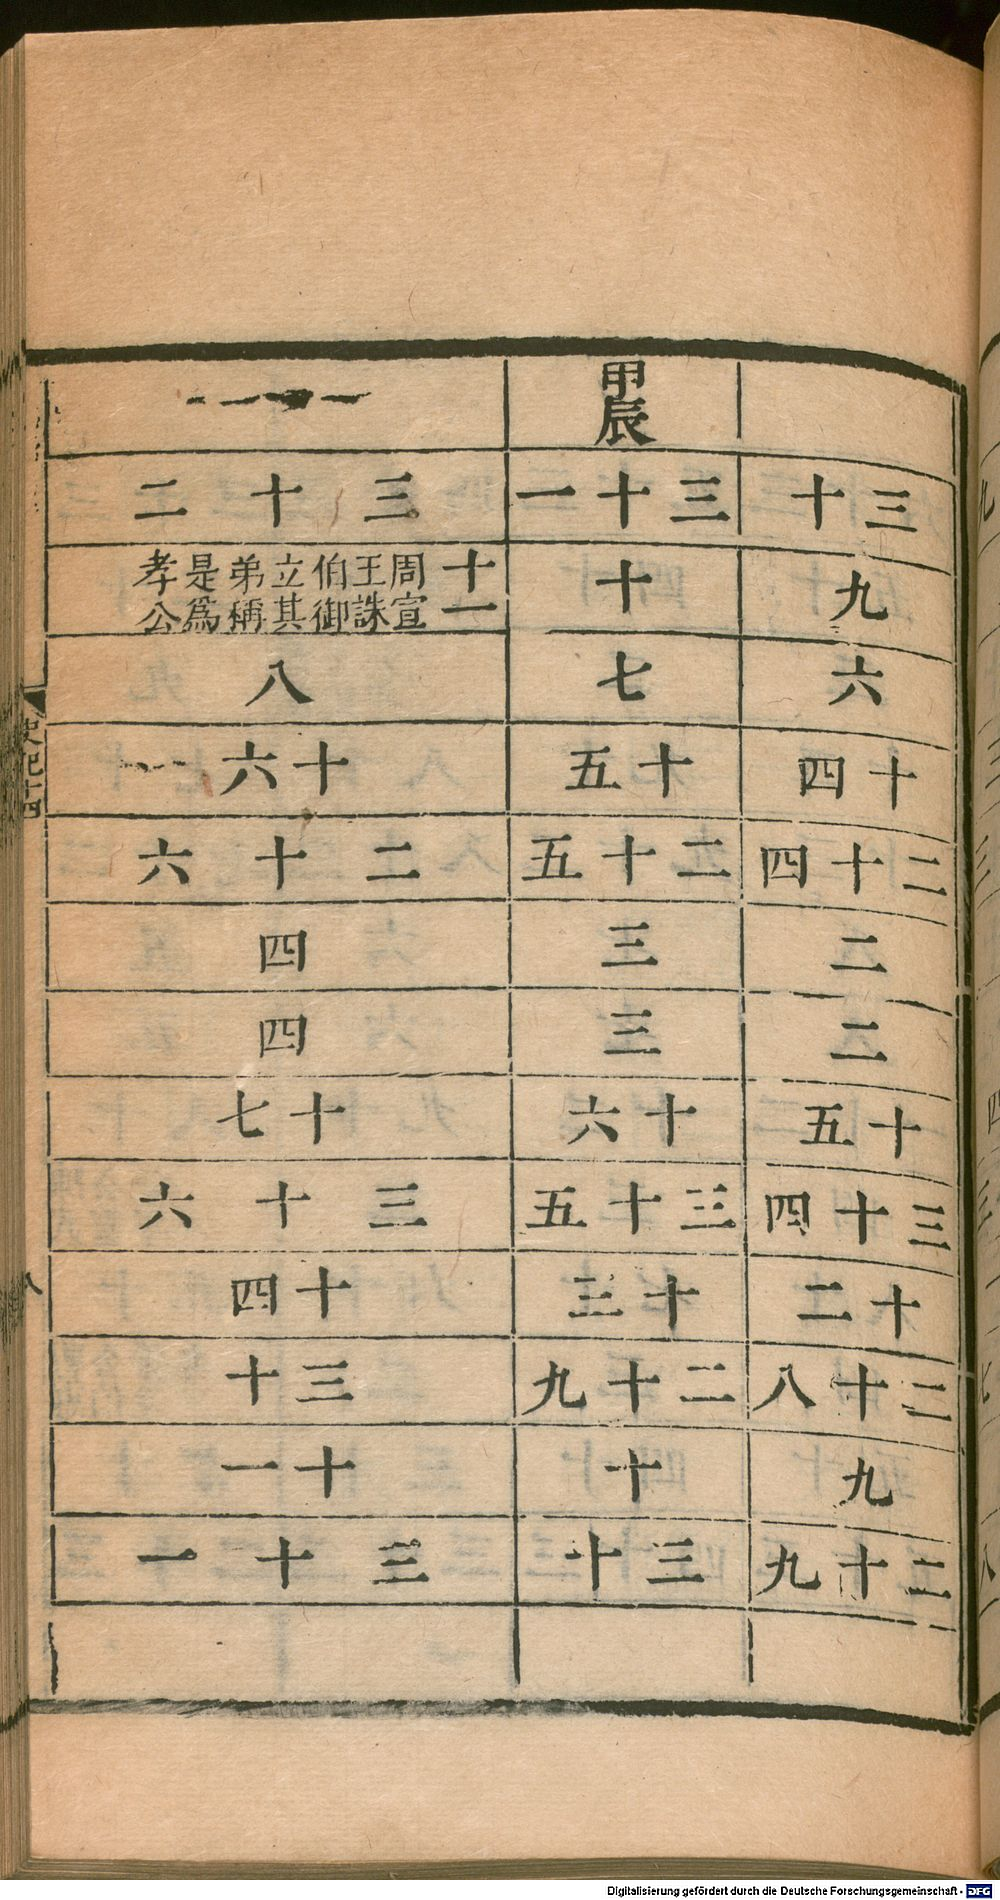 三十
九
六
十四
二十四
二
二
十五
三十四
十二
二十八
九
二十九
甲辰
三十一
十
七
十五
二十五
三
三
十六
三十五
十三
二十九
十
三十
三十二
十一
周宣王誅伯御立其弟稱是爲孝公
八
十六
二十六
四
四
十七
三十六
十四
三十
十一
三十一
史記十四
八
Digitalisierung gefördert durch die Deutsche Forschungsgemeinschaft - DFG